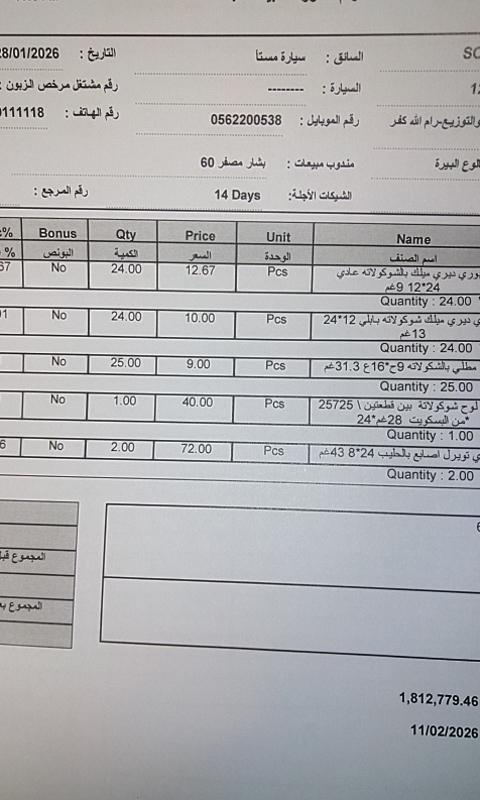 SC السائق : سيارة مستأ التاريخ : 28/01/2026
12 السيارة : -------- رقم مشتغل مرخص الزبون :
والتوزيع-رام الله كفر رقم الموبايل : 0562200538 رقم الهاتف : 0111118
لوع البيرة مندوب مبيعات : بشار مصفر 60
الشيكات الآجلة: 14 Days رقم المرجع :
% Bonus Qty Price Unit Name
% البونص الكمية السعر الوحدة اسم الصنف
67 No 24.00 12.67 Pcs وري ديري ميلك بالشوكولاته عادي
24*12 9غم
Quantity : 24.00
01 No 24.00 10.00 Pcs ي ديري ميلك شوكولاته بابلي 12*24
13غم
Quantity : 24.00
No 25.00 9.00 Pcs مطلي بالشكولاته 9ح*16ع 31.3غم
Quantity : 25.00
No 1.00 40.00 Pcs لوح شوكولاتة بين قطعتين \ 25725
*من البسكويت 28غم*24
Quantity : 1.00
6 No 2.00 72.00 Pcs ي تويرل اصابع بالحليب 24*8 43غم
Quantity : 2.00
6
المجموع قبل
المجموع بع
1,812,779.46
11/02/2026